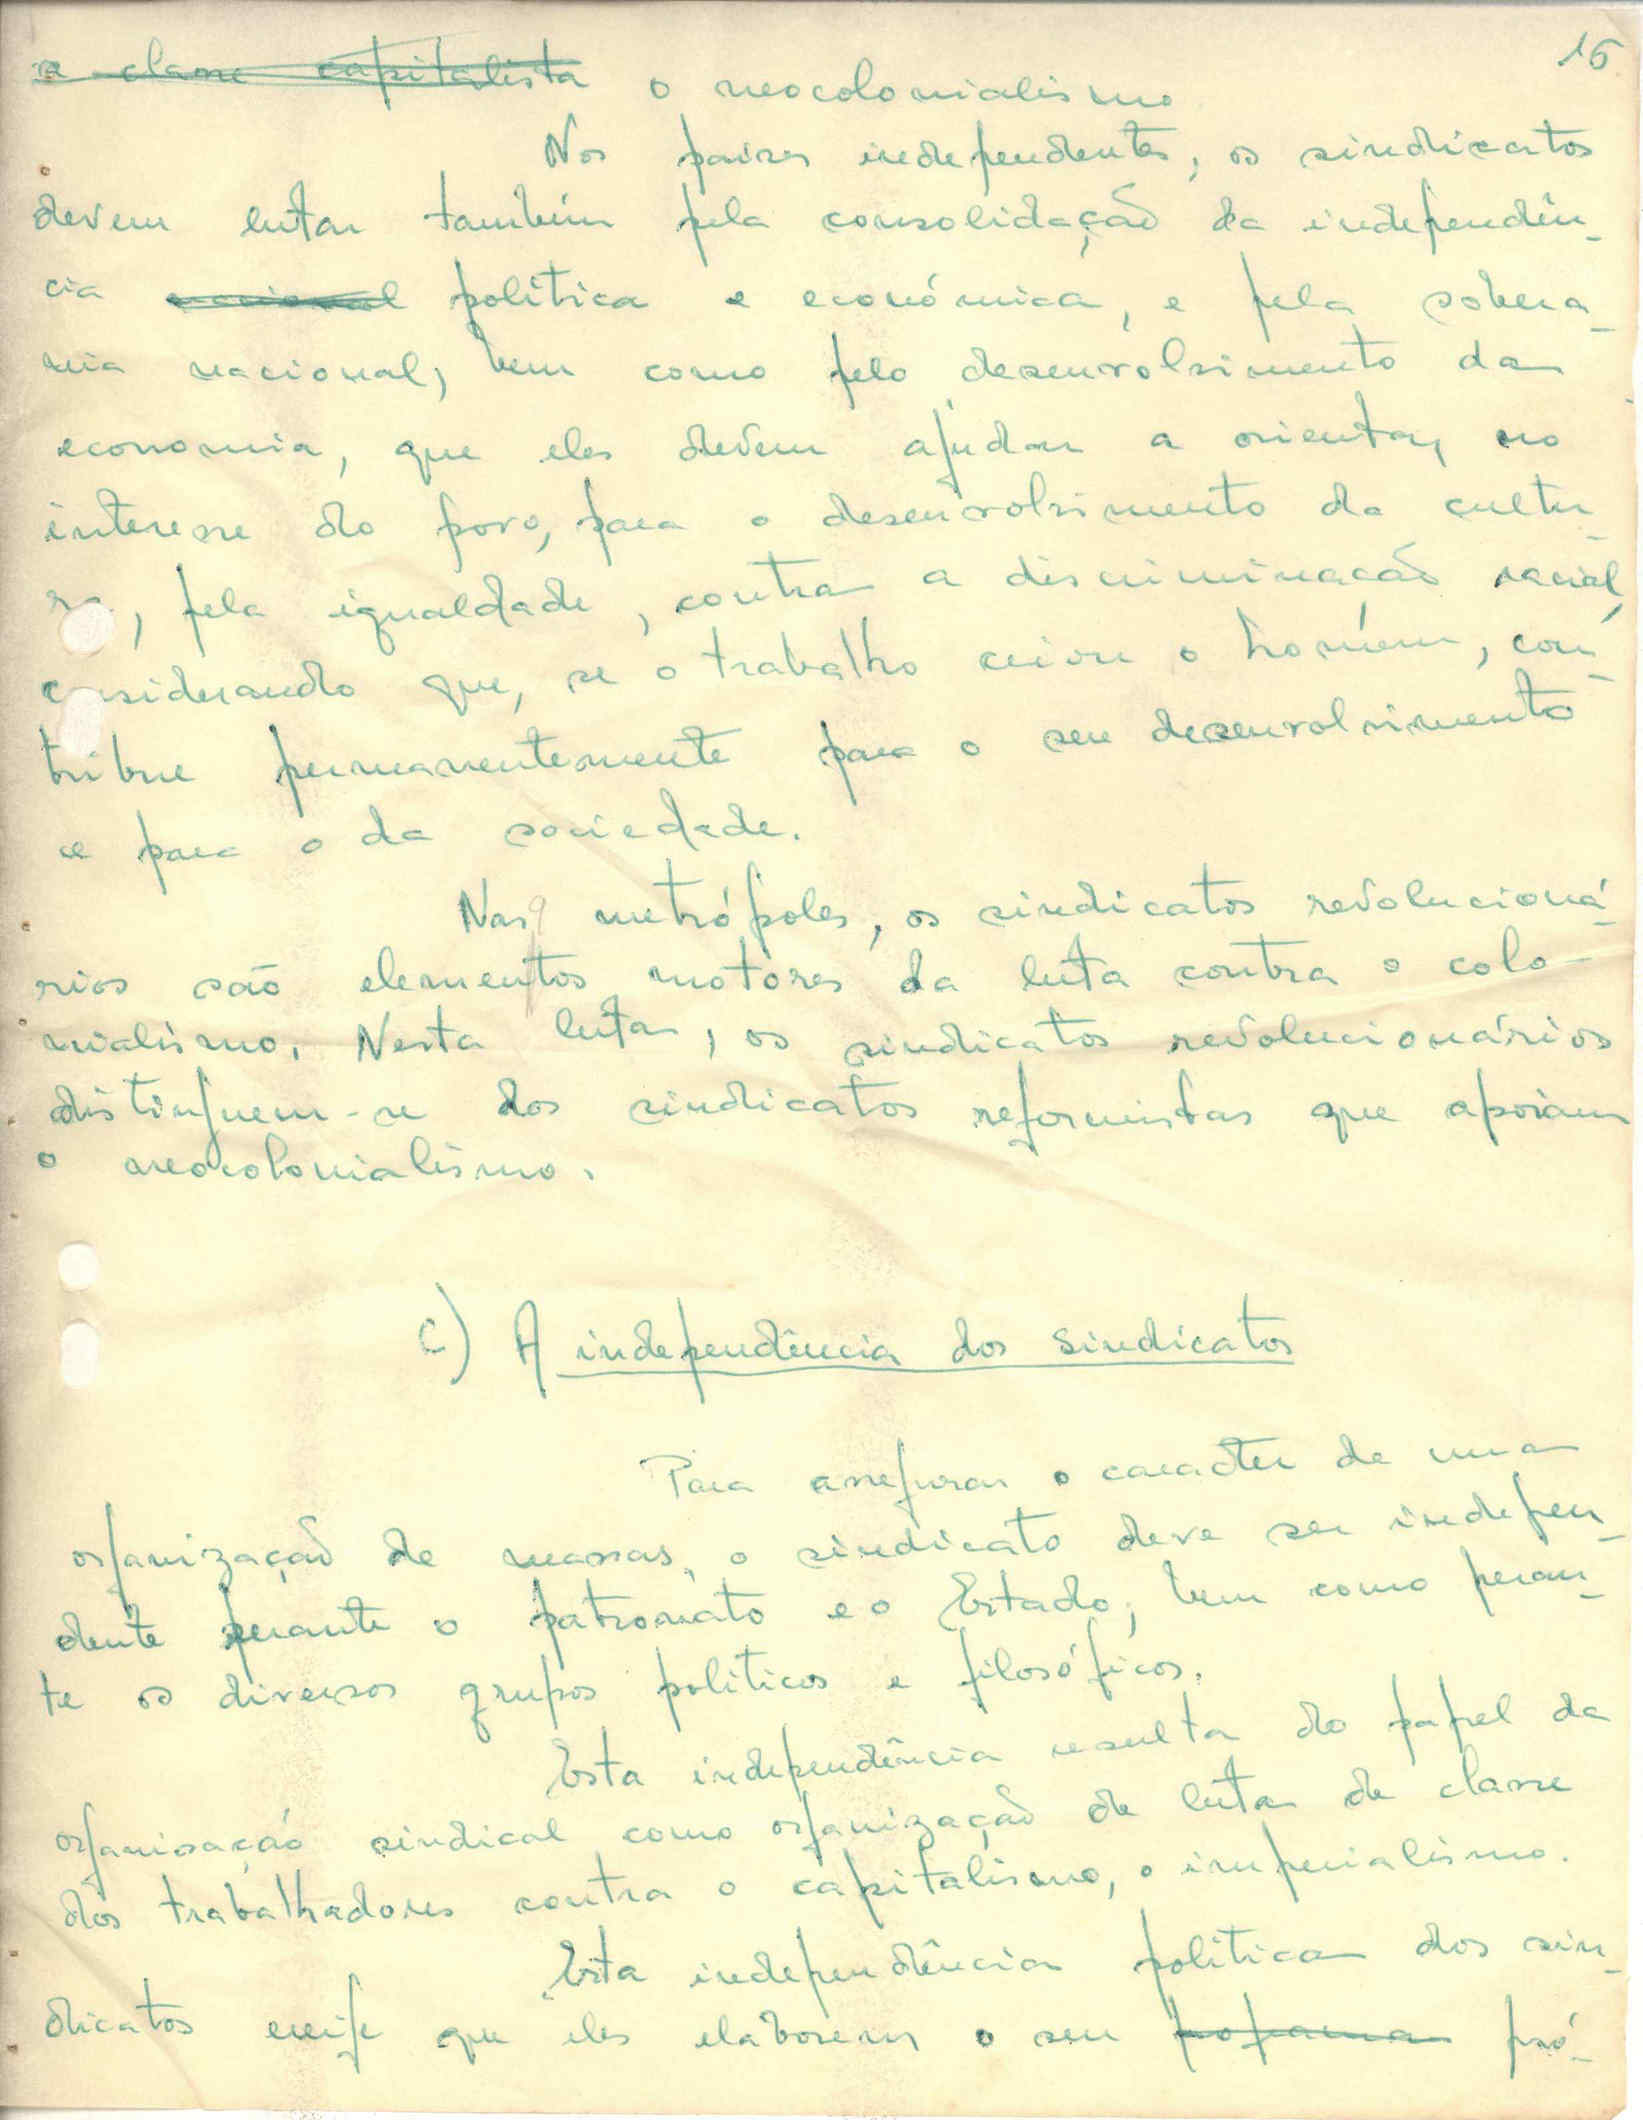 16
a classe capitalista o neocolonialismo
Nos países independentes, os sindicatos
devem lutar também pela consolidação da independên-
cia nacional política e económica, e pela sobera-
nia nacional, bem como pelo desenvolvimento da
economia, que eles devem ajudar a orientar, no
interesse do povo, para o desenvolvimento da cultu-
ra, pela igualdade, contra a discriminação racial,
considerando que, se o trabalho criou o homem, con-
tribue permanentemente para o seu desenvolvimento
e para o da sociedade.
Nas metrópoles, os sindicatos revolucioná-
rios são elementos motores da luta contra o colo-
nialismo. Nesta luta, os sindicatos revolucionários
distinguem-se dos sindicatos reformistas que apoiam
o neocolonialismo.
C) A independência dos sindicatos
Para assegurar o caracter de uma
organização de massas, o sindicato deve ser indepen-
dente perante o patronato e o Estado, bem como peran-
te os diversos grupos políticos e filosóficos.
Esta independência resulta do papel da
organisação sindical como organização de luta de classe
dos trabalhadores contra o capitalismo, o imperialismo.
Esta independência política dos sin-
dicatos exige que eles elaborem o seu programa pró-